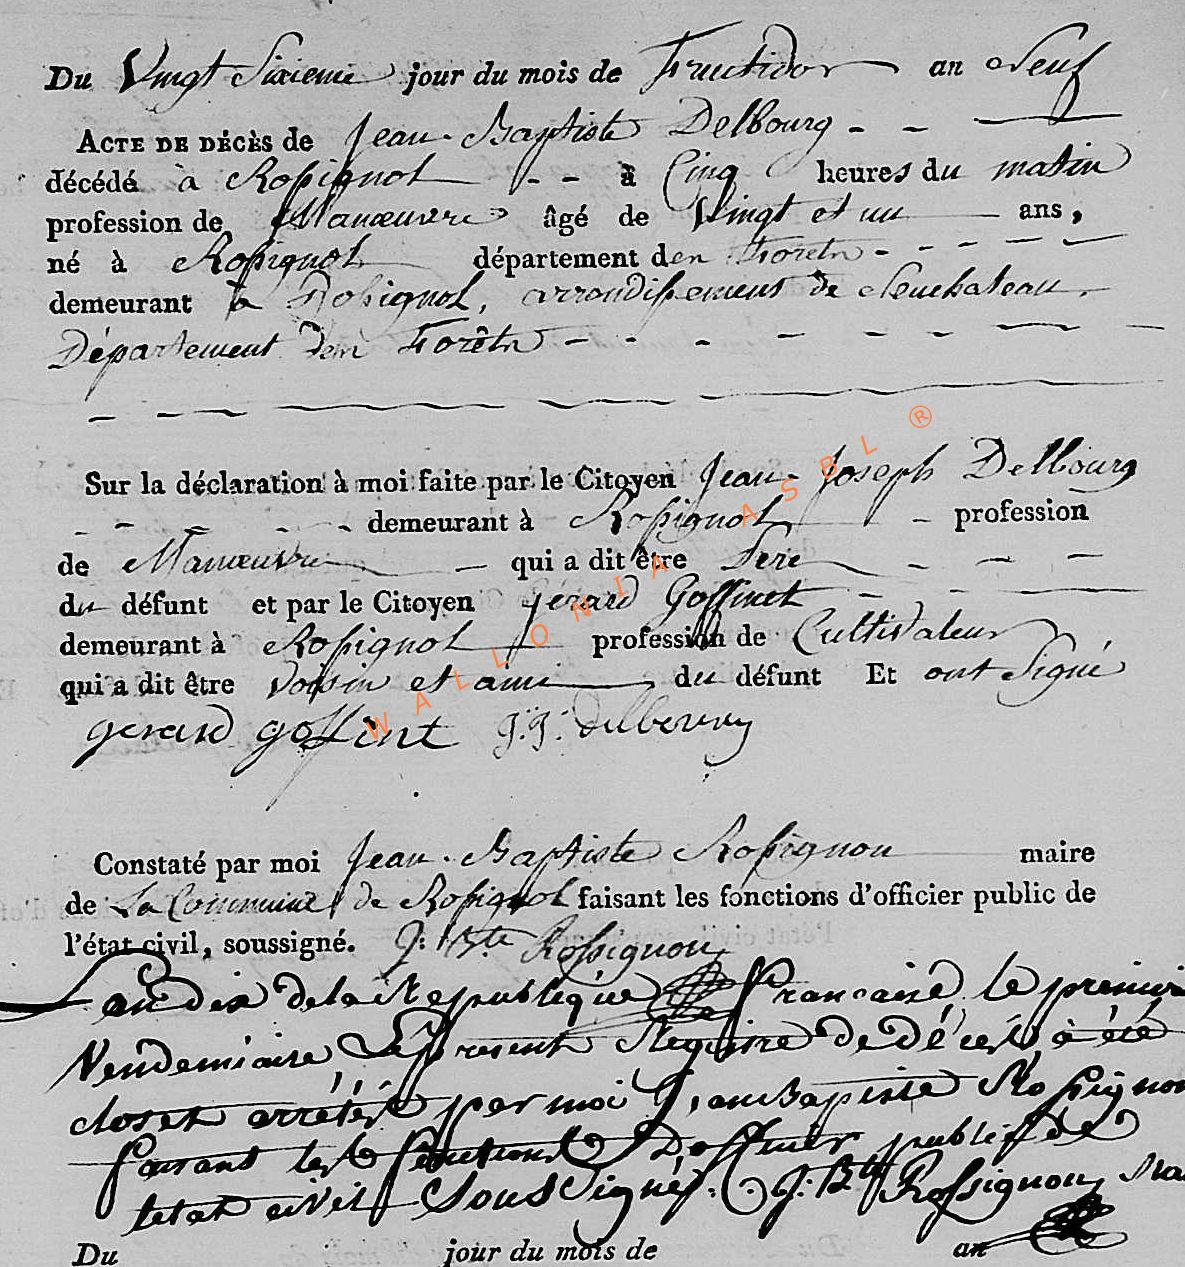 Du Vingt Sixieme jour du mois de Fructidor an Neuf
ACTE DE DÉCÈS de Jean-Baptiste Delbourg - - —
décédé à Rossignol - - à Cinq heures du matin
profession de Manœuvre âgé de Vingt et un ans,
né à Rossignol département des Forêts - - - - -
demeurant à Rossignol, arrondissement de Neuchateau,
Département des Forêts - - - - - - -
Sur la déclaration à moi faite par le Citoyen Jean-Joseph Delbourg
- - - - - demeurant à Rossignol - profession
de Manœuvre - qui a dit être Pere - - -
du défunt et par le Citoyen Gérard Goffinet - - -
demeurant à Rossignol profession de Cultivateur
qui a dit être Voisin et ami du défunt Et ont Signé
gerard goffint J.J. delbourg
Constaté par moi Jean-Baptiste Rossignon maire
de La Commune de Rossignol faisant les fonctions d'officier public de
l'état civil, soussigné. J: Bte Rossignon
Lan dix de la Republique Francaise le premier
Vendemiaire Le present Registre de décès à été
clos et arrété par moi Jean Baptiste Rossignon
faisant les fonctions Dofficier public de
letat civil Soussigné. J. Bte Rossignon
Du jour du mois de an
WALLONIA ASBL ®